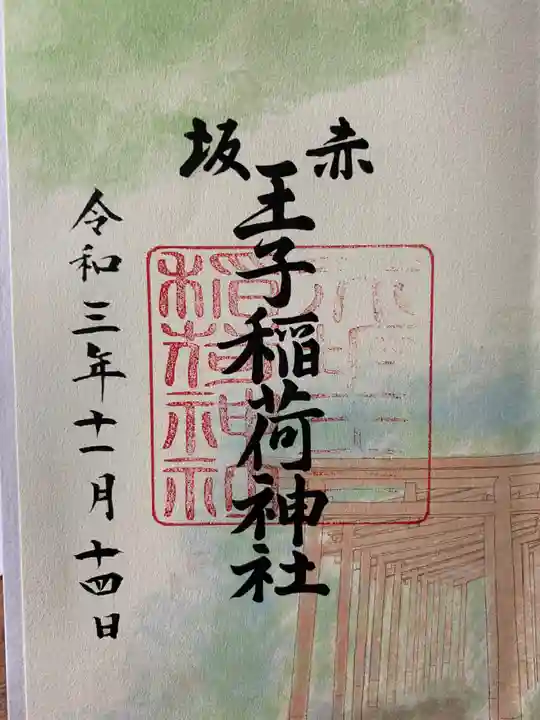 赤坂
王子稲荷神社
令和三年十一月十四日